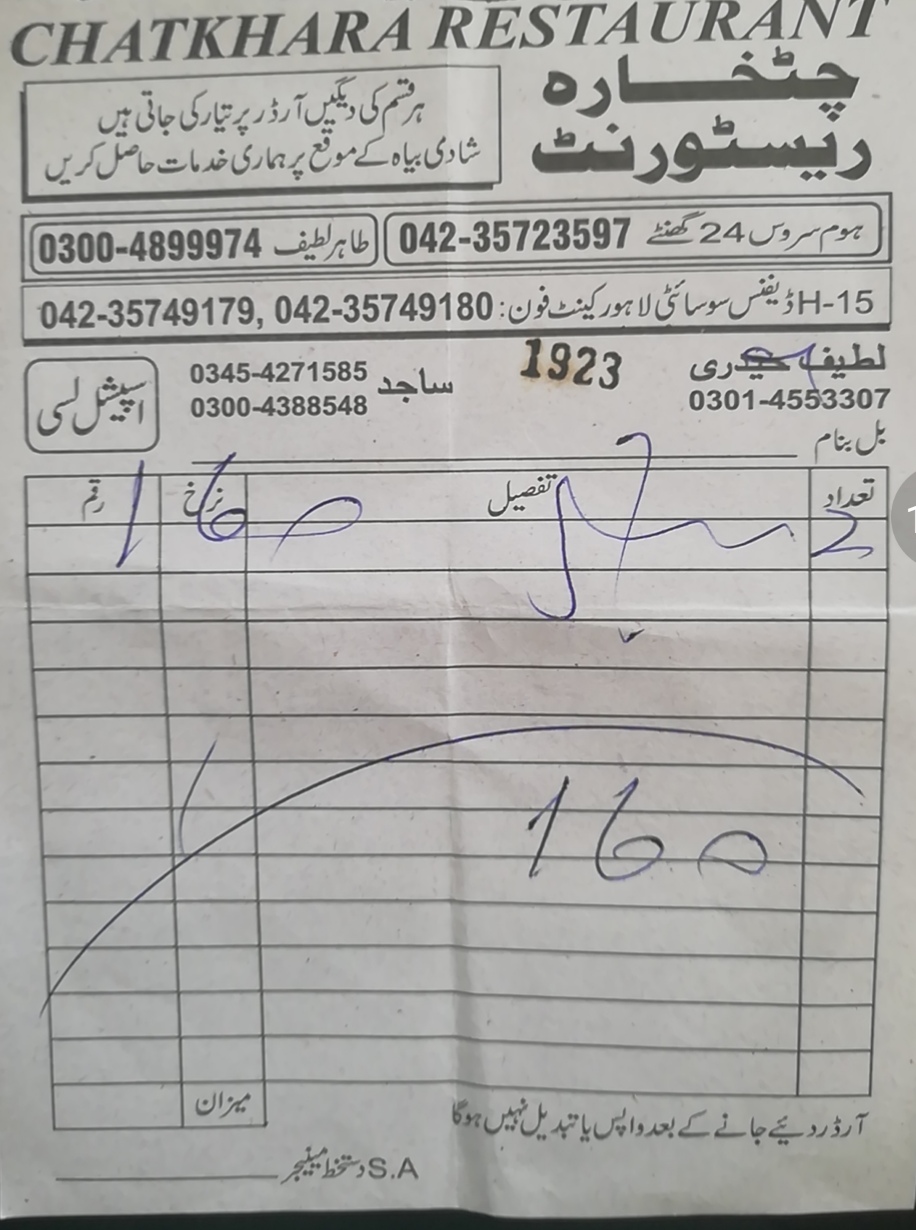 CHATKHARA RESTAURANT
چٹخارہ
ریسٹورنٹ
ہر قسم کی دیگیں آرڈر پر تیار کی جاتی ہیں
شادی بیاہ کے موقع پر ہماری خدمات حاصل کریں
ہوم سروس 24 گھنٹے 042-35723597
طاہر لطیف 0300-4899974
H-15 ڈیفنس سوسائٹی لاہور کینٹ فون: 042-35749180 ,042-35749179
لطیف حیدری
0301-4553307
1923
ساجد 0345-4271585
0300-4388548
اسپیشل لسی
بل بنام
تعداد تفصیل نرخ رقم
2 160
160
میزان
آرڈر دیئے جانے کے بعد واپس یا تبدیل نہیں ہوگا
S.A دستخط مینیجر